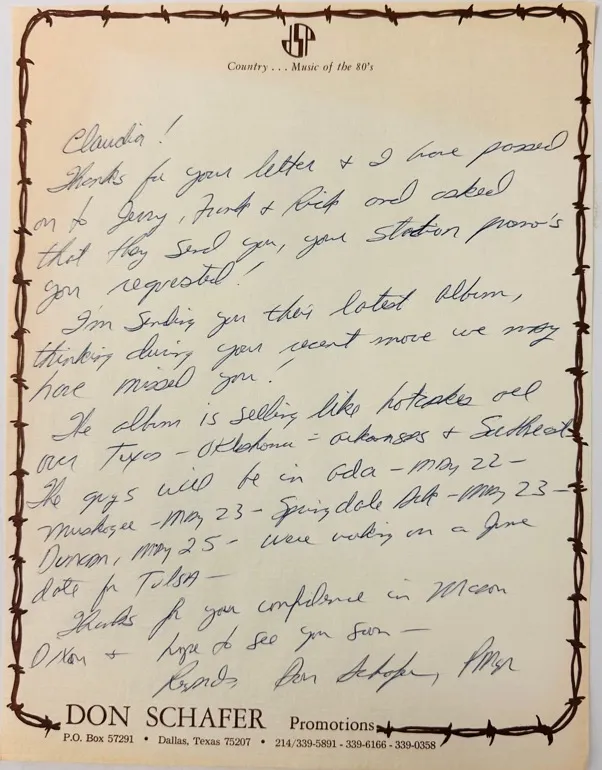 dSP
Country . . . Music of the 80's
Claudia!
Thanks for your letter & I have passed
on to Jerry, Frank & Rick and asked
that they send you, your station promo's
you requested!
I'm sending you their latest album,
thinking during your recent move we may
have missed you!
The album is selling like hotcakes all
over Texas - Oklahoma - Arkansas & Southeast
The guys will be in Ada - May 22 -
Muskogee - May 23 - Springdale Ark - May 23 -
Duncan, May 25 - were working on a June
date for Tulsa -
Thanks for your confidence in Mason
Dixon & hope to see you soon -
Regards, Don Schafer, PMgr
DON SCHAFER Promotions
P.O. Box 57291 • Dallas, Texas 75207 • 214/339-5891 - 339-6166 - 339-0358